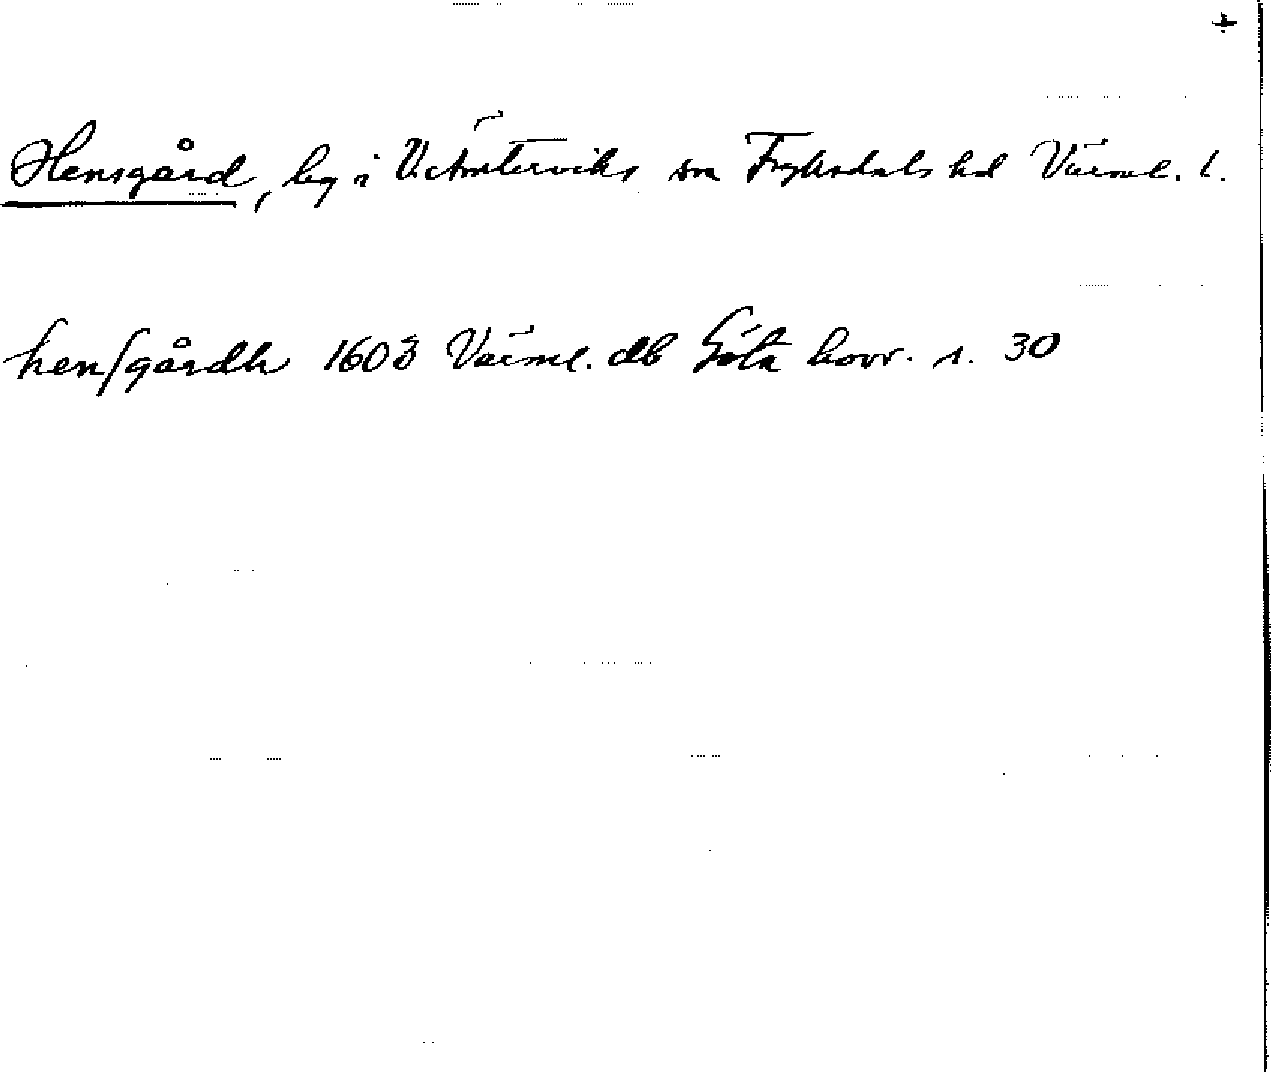 +
Hensgård, by i V. Ämterviks sn Fryksdals hd Värml. l.
henſgårdh 1603 Värml. db Göta hovr. s. 30